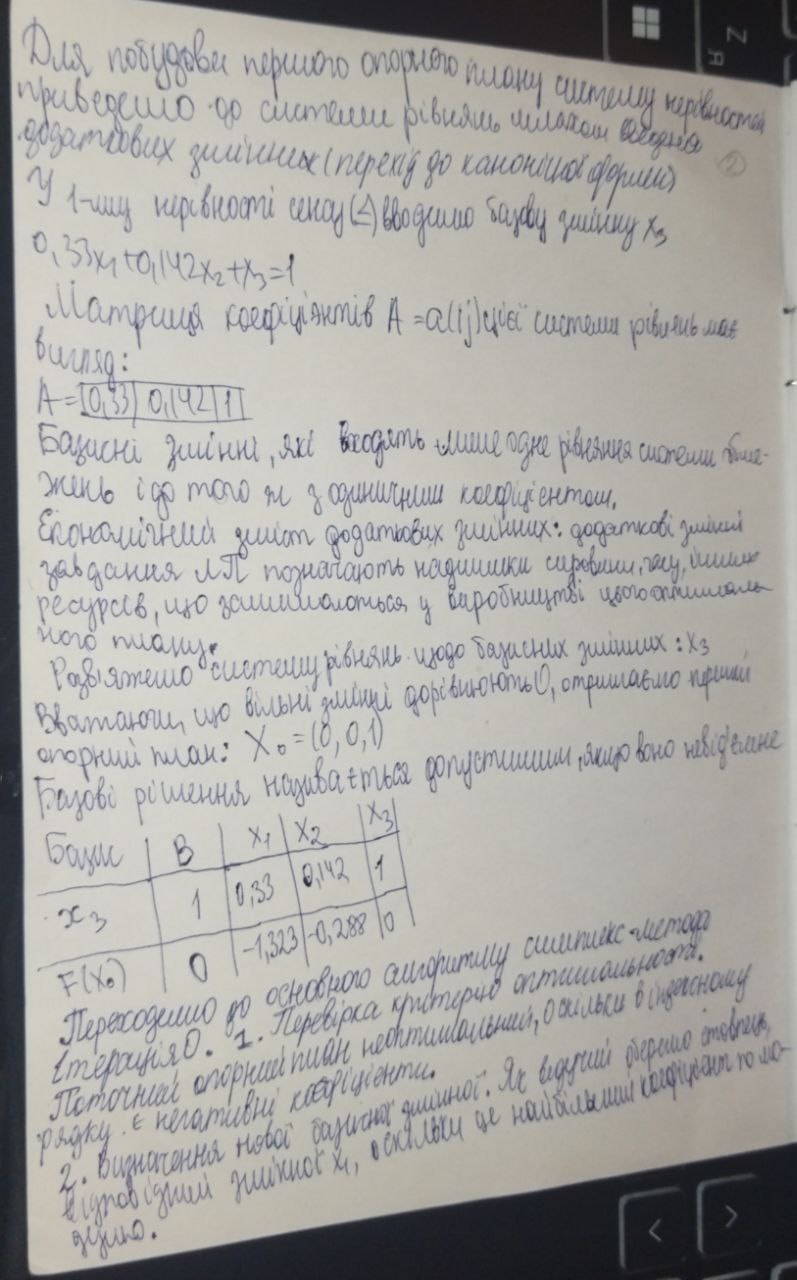 Для побудови першого опорного плану систему нерівностей
приведемо до системи рівнянь шляхом введення
додаткових змінних (перехід до канонічної форми)
2
У 1-му нерівності сенсу (≤) вводимо базову змінну x₃
0,33x₁+0,142x₂+x₃=1
Матриця коефіцієнтів A = a(ij) цієї системи рівнянь має
вигляд:
A = |0,33|0,142|1|
Базисні змінні, які входять лише одне рівняння системи обме-
жень і до того ж з одиничним коефіцієнтом.
Економічний зміст додаткових змінних: додаткові змінні
завдання ЛП позначають надлишки сировини, часу, інших
ресурсів, що залишаються у виробництві цього оптималь-
ного плану.
Розв'яжемо систему рівнянь щодо базисних змінних: x₃
Вважаючи, що вільні змінні дорівнюють 0, отримаємо перший
опорний план: X₀ = (0,0,1)
Базові рішення називається допустимим, якщо воно невід'ємне
Базис B X₁ X₂ X₃
x₃ 1 0,33 0,142 1
F(X₀) 0 -1,323 -0,288 0
Переходимо до основного алгоритму симплекс-метода
Ітерація 0. 1. Перевірка критерію оптимальності.
Поточний опорний план неоптимальний, оскільки в індексному
рядку є негативні коефіцієнти.
2. Визначення нової базисної змінної. Як ведучий оберемо стовпець,
відповідний змінної x₁, оскільки це найбільший коефіцієнт по мо-
дулю.
Z
Я
<
>